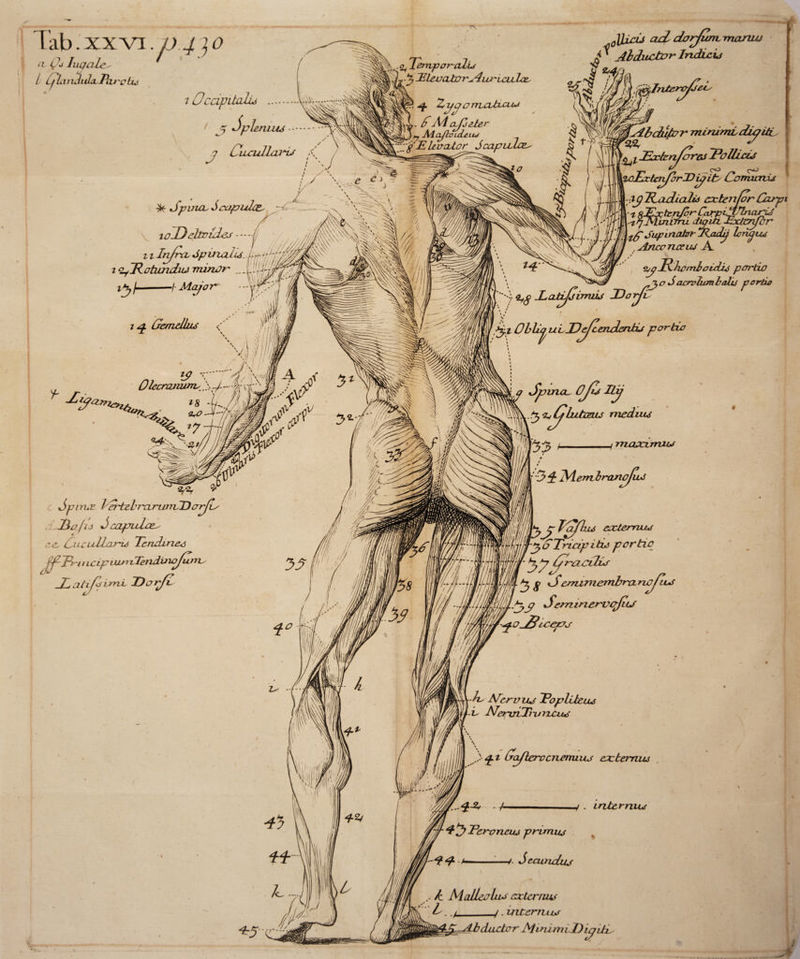 Tab. XXVI. p. 430
a Os Iugale
b Glandula Parotis
1 Occipitalis
5 Splenius
9 Cucullaris
* Spina Scapulæ
10 Deltoides
11 Infra Spinalis
12 Rotundus minor
13 Major
14 Gemellus
19
Olecranum
18
20
17
21
+ Ligamentum Anulare
24
22
A
25 Digitorum Flexor
26 Ulnaris Flexor carpi
c Spinæ Vertebrarum Dorsi
d Basis Scapulæ
e e Cucullaris Tendines
ff Principium Tendinosum
Latissimi Dorsi
2 Temporalis
3 Elevator Auriculæ
4 Zygomaticus
6 Masseter
7 Mastoideus
8 Elevator Scapulæ
10
e e e
13
14
15 Bicipitis portio
Abductor
Pollicis ad dorsum manus
Abductor Indicis
24
25
Interossei
Abductor minimi digiti
22
21 Extensores Pollicis
20 Extensor Digit. Comunis
19 Radialis extensor Carpi
18 Extensor Carpi Ulnaris
17 Minimi digiti Extensor
16 Supinator Radij longus
Anconæus A
29 Rhomboidis portio
30 Sacrolumbalis portio
28 Latissimus Dorsi
31 Obliqui Descendentis portio
g Spina Ossis Ilij
32 Glutæus medius
33 maximus
34 Membranosus
35 Vastus externus
36 Tricipitis portio
37 Gracilis
38 Semimembranosus
39 Seminervosus
40 Biceps
h Nervus Popliteus
i Nervi Truncus
41 Gasterocnemius externus
42 internus
43 Peroneus primus
44 Secundus
k Malleolus externus
l internus
45 Abductor Minimi Digiti
31
32
33
f
35
36
38
39
40
i
h
41
42
43
44
k
l
45